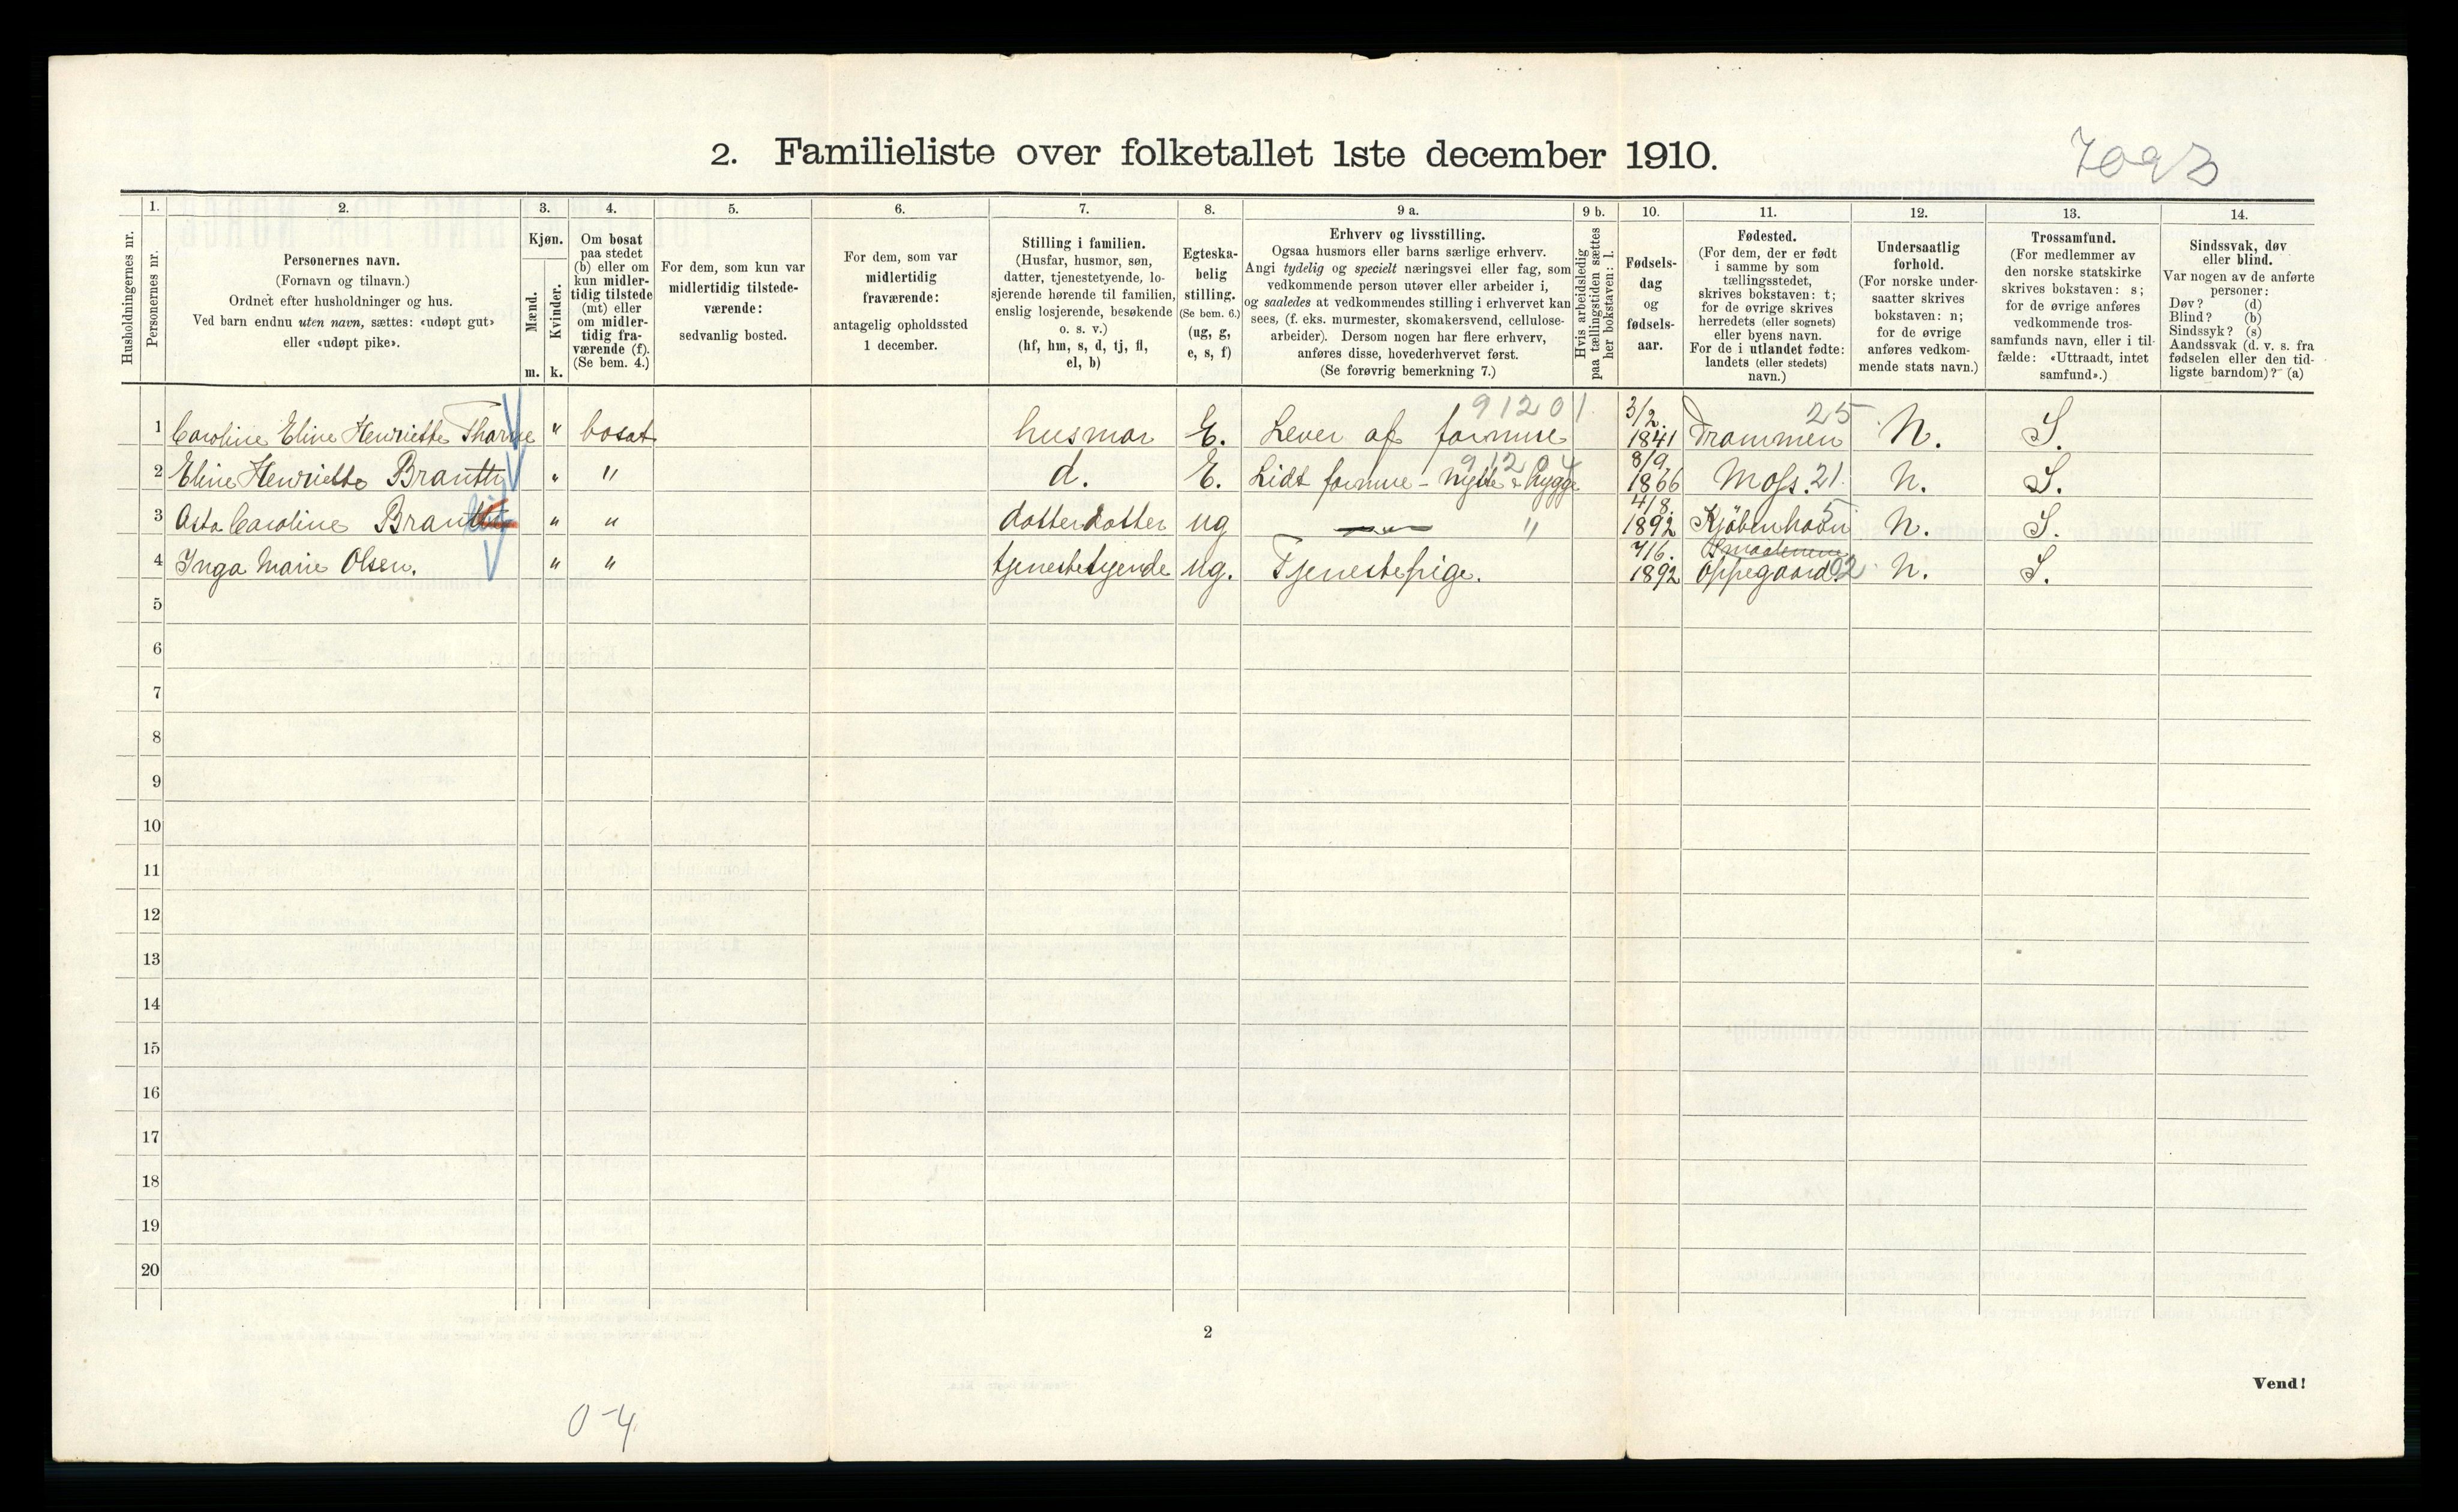 2. Familieliste over folketallet 1ste december 1910.
Husholdningernes nr.
1.
Personernes nr.
2.
Personernes navn.
(Fornavn og tilnavn.)
Ordnet efter husholdninger og hus.
Ved barn endnu uten navn, sættes: «udøpt gut»
eller «udøpt pike».
3.
Kjøn.
Mænd.
Kvinder.
m. k.
4.
Om bosat
paa stedet
(b) eller om
kun midler-
tidig tilstede
(mt) eller
om midler-
tidig fra-
værende (f).
(Se bem. 4.)
5.
For dem, som kun var
midlertidig tilstede-
værende:
sedvanlig bosted.
6.
For dem, som var
midlertidig
fraværende:
antagelig opholdssted
1 december.
7.
Stilling i familien.
(Husfar, husmor, søn,
datter, tjenestetyende, lo-
sjerende hørende til familien,
enslig losjerende, besøkende
o. s. v.)
(hf, hm, s, d, tj, fl,
el, b)
8.
Egteska-
belig
stilling.
(Se bem. 6.)
(ug, g,
e, s, f)
9 a.
Erhverv og livsstilling.
Ogsaa husmors eller barns særlige erhverv.
Angi tydelig og specielt næringsvei eller fag, som
vedkommende person utøver eller arbeider i,
og saaledes at vedkommendes stilling i erhvervet kan
sees, (f. eks. murmester, skomakersvend, cellulose-
arbeider). Dersom nogen har flere erhverv,
anføres disse, hovederhvervet først.
(Se forøvrig bemerkning 7.)
9 b.
Hvis arbeidsledig
paa tællingstiden sættes
her bokstaven: l.
10.
Fødsels-
dag
og
fødsels-
aar.
11.
Fødested.
(For dem, der er født
i samme by som
tællingsstedet,
skrives bokstaven: t;
for de øvrige skrives
herredets (eller sognets)
eller byens navn.
For de i utlandet fødte:
landets (eller stedets)
navn.)
12.
Undersaatlig
forhold.
(For norske under-
saatter skrives
bokstaven: n;
for de øvrige
anføres vedkom-
mende stats navn.)
13.
Trossamfund.
(For medlemmer av
den norske statskirke
skrives bokstaven: s;
for de øvrige anføres
vedkommende tros-
samfunds navn, eller i til-
fælde: «Uttraadt, intet
samfund».)
14.
Sindssvak, døv
eller blind.
Var nogen av de anførte
personer:
Døv? (d)
Blind? (b)
Sindssyk? (s)
Aandssvak (d. v. s. fra
fødselen eller den tid-
ligste barndom)? (a)
1 Caroline Eline Henriette Tharne " bosat husmor E. Lever af formue 91201 3/2. 1841 Drammen 25 N. S.
2 Eline Henriette Branth " " d. E. Lidt formue - nytte & hygge 91204 8/9. 1866 Moss. 21 N. S.
3 Asta Caroline Branth " " datterdatter ug " 4/8. 1892 Kjøbenhavn 5 N. S.
4 Inga Marie Olsen. " " tjenestetyende ug. Tjenestepige. 7/6. 1892 Smaalenene Oppegaard. 02 N. S.
5
6
7
8
9
10
11
12
13
14
15
16
17
18
19
20
2
Vend!
0-4